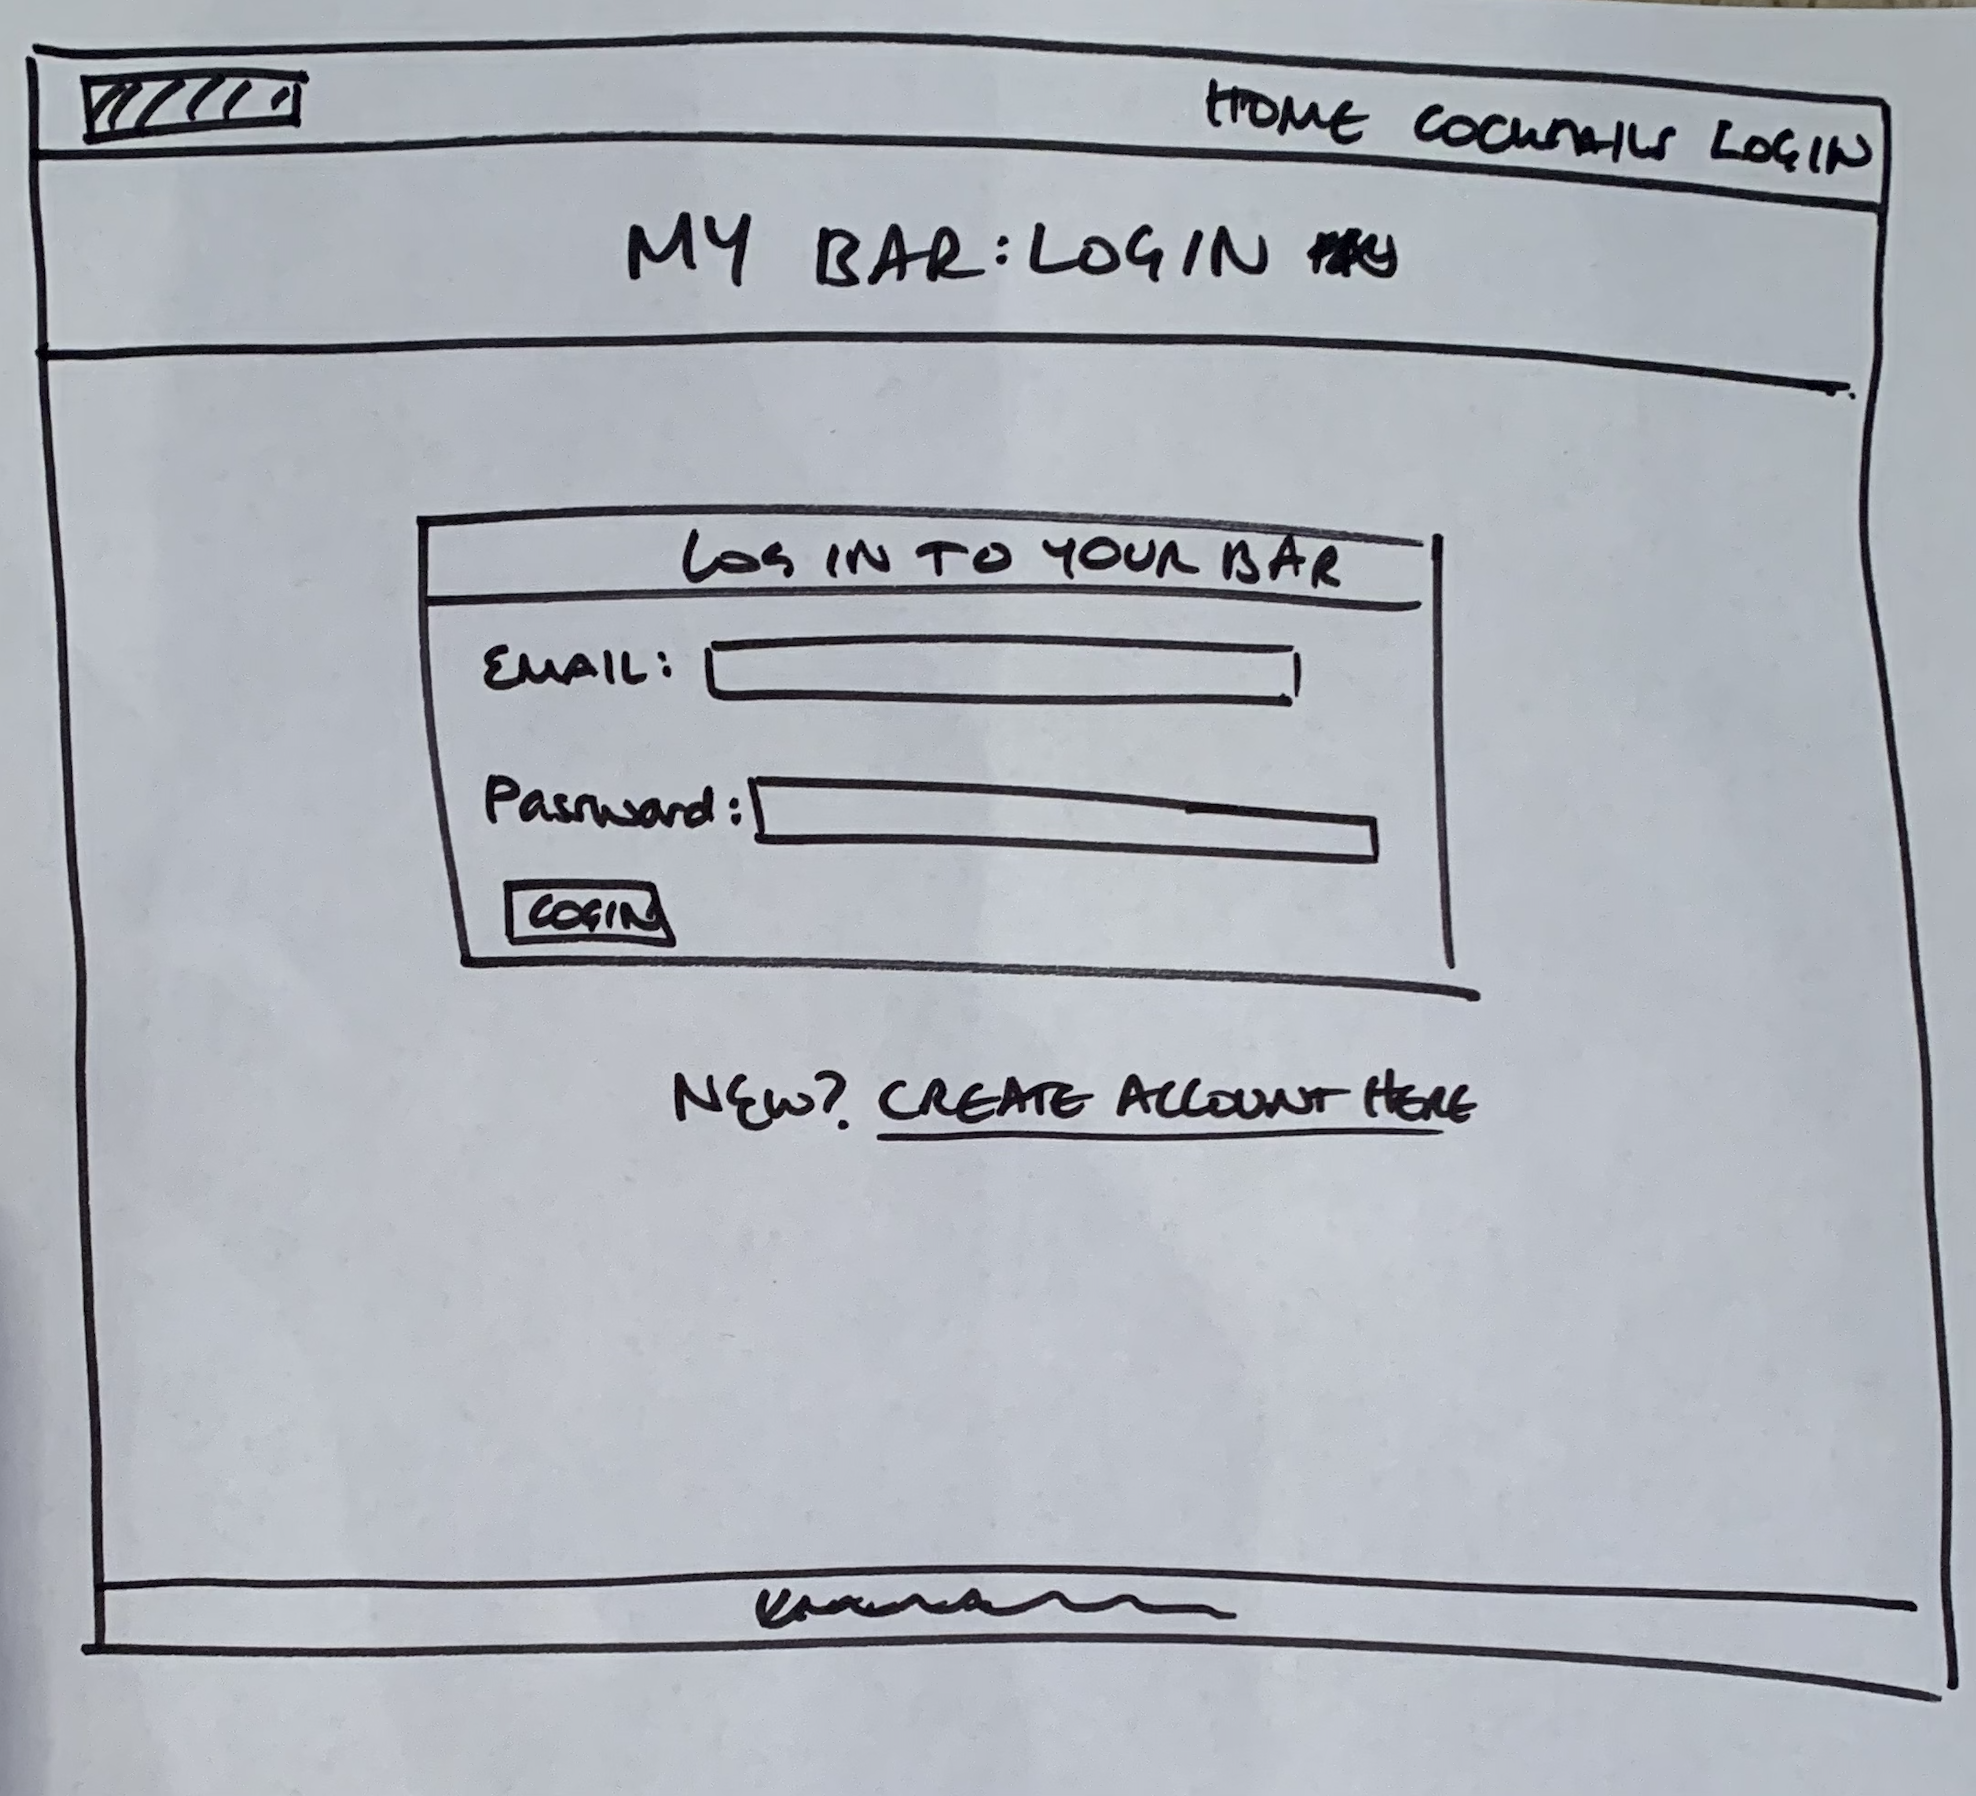 HOME COCKTAILS LOGIN
MY BAR: LOGIN
LOG IN TO YOUR BAR
EMAIL:
Password:
LOGIN
NEW? CREATE ACCOUNT HERE